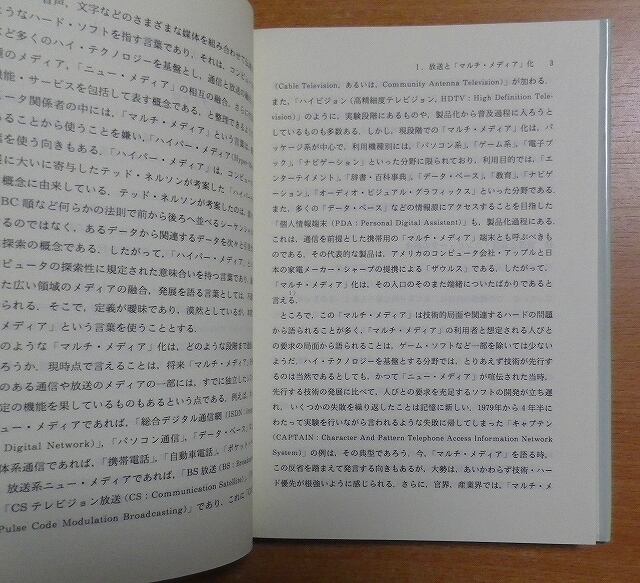 音声、文字などのさまざまな媒体を組み合わせて
ようなハード・ソフトを指す言葉であり、それは、コンピ
など多くのハイ・テクノロジーを基盤とし、通信と放送の
のメディア、「ニュー・メディア」の相互の融合、さらに
機能・サービスを包括して表す概念である、と整理できる
ータ関係者の中には、「マルチ・メディア」という言葉
あることから使うことを嫌い、「ハイパー・メディア
を使う向きもある。「ハイパー・メディア」は、コンピ
に大いに寄与したテッド・ネルソンが考案した「ハイパー
概念に由来している。テッド・ネルソンが考案したのは、
BC順など何らかの法則で前から後ろへ並べるシーケン
るのではなく、あるデータから関連するデータを次々と
探索の概念である。したがって、「ハイパー・メディア」
ピュータの探索性に規定された意味合いを持つ言葉であり、
た広い領域のメディアの融合、発展を語る言葉としては、
られる。そこで、定義が曖昧であり、漠然としているが、
メディア」という言葉を使うこととする。
のような「マルチ・メディア」化は、どのような段階まで
ろうか。現時点で言えることは、将来「マルチ・メディ
のある通信や放送のメディアの一部には、すでに独立した
定の機能を果しているものもあるという点である。例えば、
ニュー・メディアであれば、「総合デジタル通信網(ISDN:
Digital Network)」、「パソコン通信」、「データ・ベース」
体系通信であれば、「携帯電話」、「自動車電話」、「ポケット
放送系ニュー・メディアであれば、「BS放送(BS:Broad
「CSテレビジョン放送(CS:Communication Satellite)」
Pulse Code Modulation Broadcasting)」であり、これに
1. 放送と「マルチ・メディア」化 3
(Cable Television、あるいは、Community Antenna Television)」が加わる。
また、「ハイビジョン(高精細度テレビジョン、HDTV:High Definition Tele-
vision)」のように、実験段階にあるものや、製品化から普及過程に入ろうと
しているものも多数ある。しかし、現段階での「マルチ・メディア」化は、パ
ッケージ系が中心で、利用機種別には、「パソコン系」、「ゲーム系」、「電子ブ
ック」、「ナビゲーション」といった分野に限られており、利用目的では、「エ
ンターテイメント」、「辞書・百科事典」、「データ・ベース」、「教育」、「ナビゲ
ーション」、「オーディオ・ビジュアル・グラフィックス」といった分野である。
また、多くの「データ・ベース」などの情報源にアクセスすることを目指した
「個人情報端末(PDA:Personal Digital Assistant)」も、製品化過程にある。
これは、通信を前提とした携帯用の「マルチ・メディア」端末とも呼ぶべきも
のである。その代表的な製品は、アメリカのコンピュータ会社・アップルと日
本の家電メーカー・シャープの提携による「ザウルス」である。したがって、
「マルチ・メディア」化は、その入口のそのまた端緒についたばかりであると
言える。
ところで、この「マルチ・メディア」は技術的局面や関連するハードの問題
から語られることが多く、「マルチ・メディア」の利用者と想定される人びと
の要求の局面から語られることは、ゲーム・ソフトなど一部を除いては少ない
ようだ。ハイ・テクノロジーを基盤とする分野では、とりあえず技術が先行す
るのは当然であるとしても、かつて「ニュー・メディア」が喧伝された当時、
先行する技術の発展に比べて、人びとの要求を充足するソフトの開発が立ち遅
れ、いくつかの失敗を繰り返したことは記憶に新しい。1979年から4年半に
わたって実験を行いながら言われるような失敗に帰してしまった「キャプテン
(CAPTAIN:Character And Pattern Telephone Access Information Network
System)」の例は、その典型であろう。今、「マルチ・メディア」を語る時、
この反省を踏まえて発言する向きもあるが、大勢は、あいかわらず技術・ハー
ド優先が根強いように感じられる。さらに、官界、産業界では、「マルチ・メ